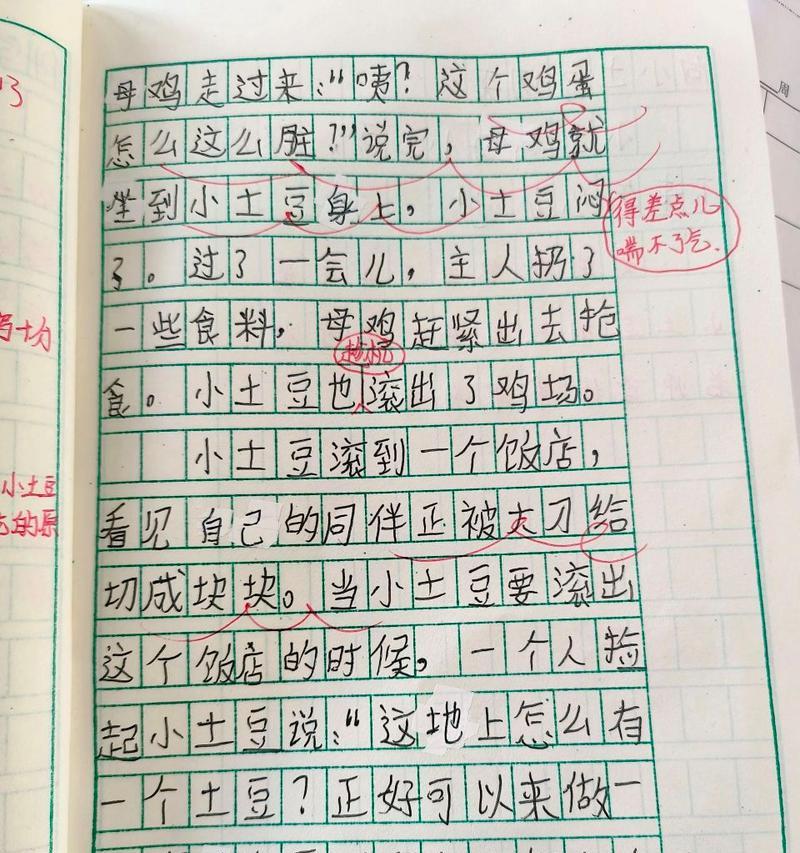 母鸡走过来：“咦？这个鸡蛋
怎么这么脏？”说完，母鸡就
坐到小土豆身上，小土豆闷
得差点儿
喘不了气.
了。过了一会儿，主人扔了
一些食料，母鸡赶紧出去抢
趁机
食。小土豆也滚出了鸡场。
小土豆滚到一个饭店，
看见自己的同伴正被大刀给
切成块块。当小土豆要滚出
这个饭店的时候，一个人捡
起小土豆说：“这地上怎么有
一个土豆？正好可以来做一
小土豆
的原